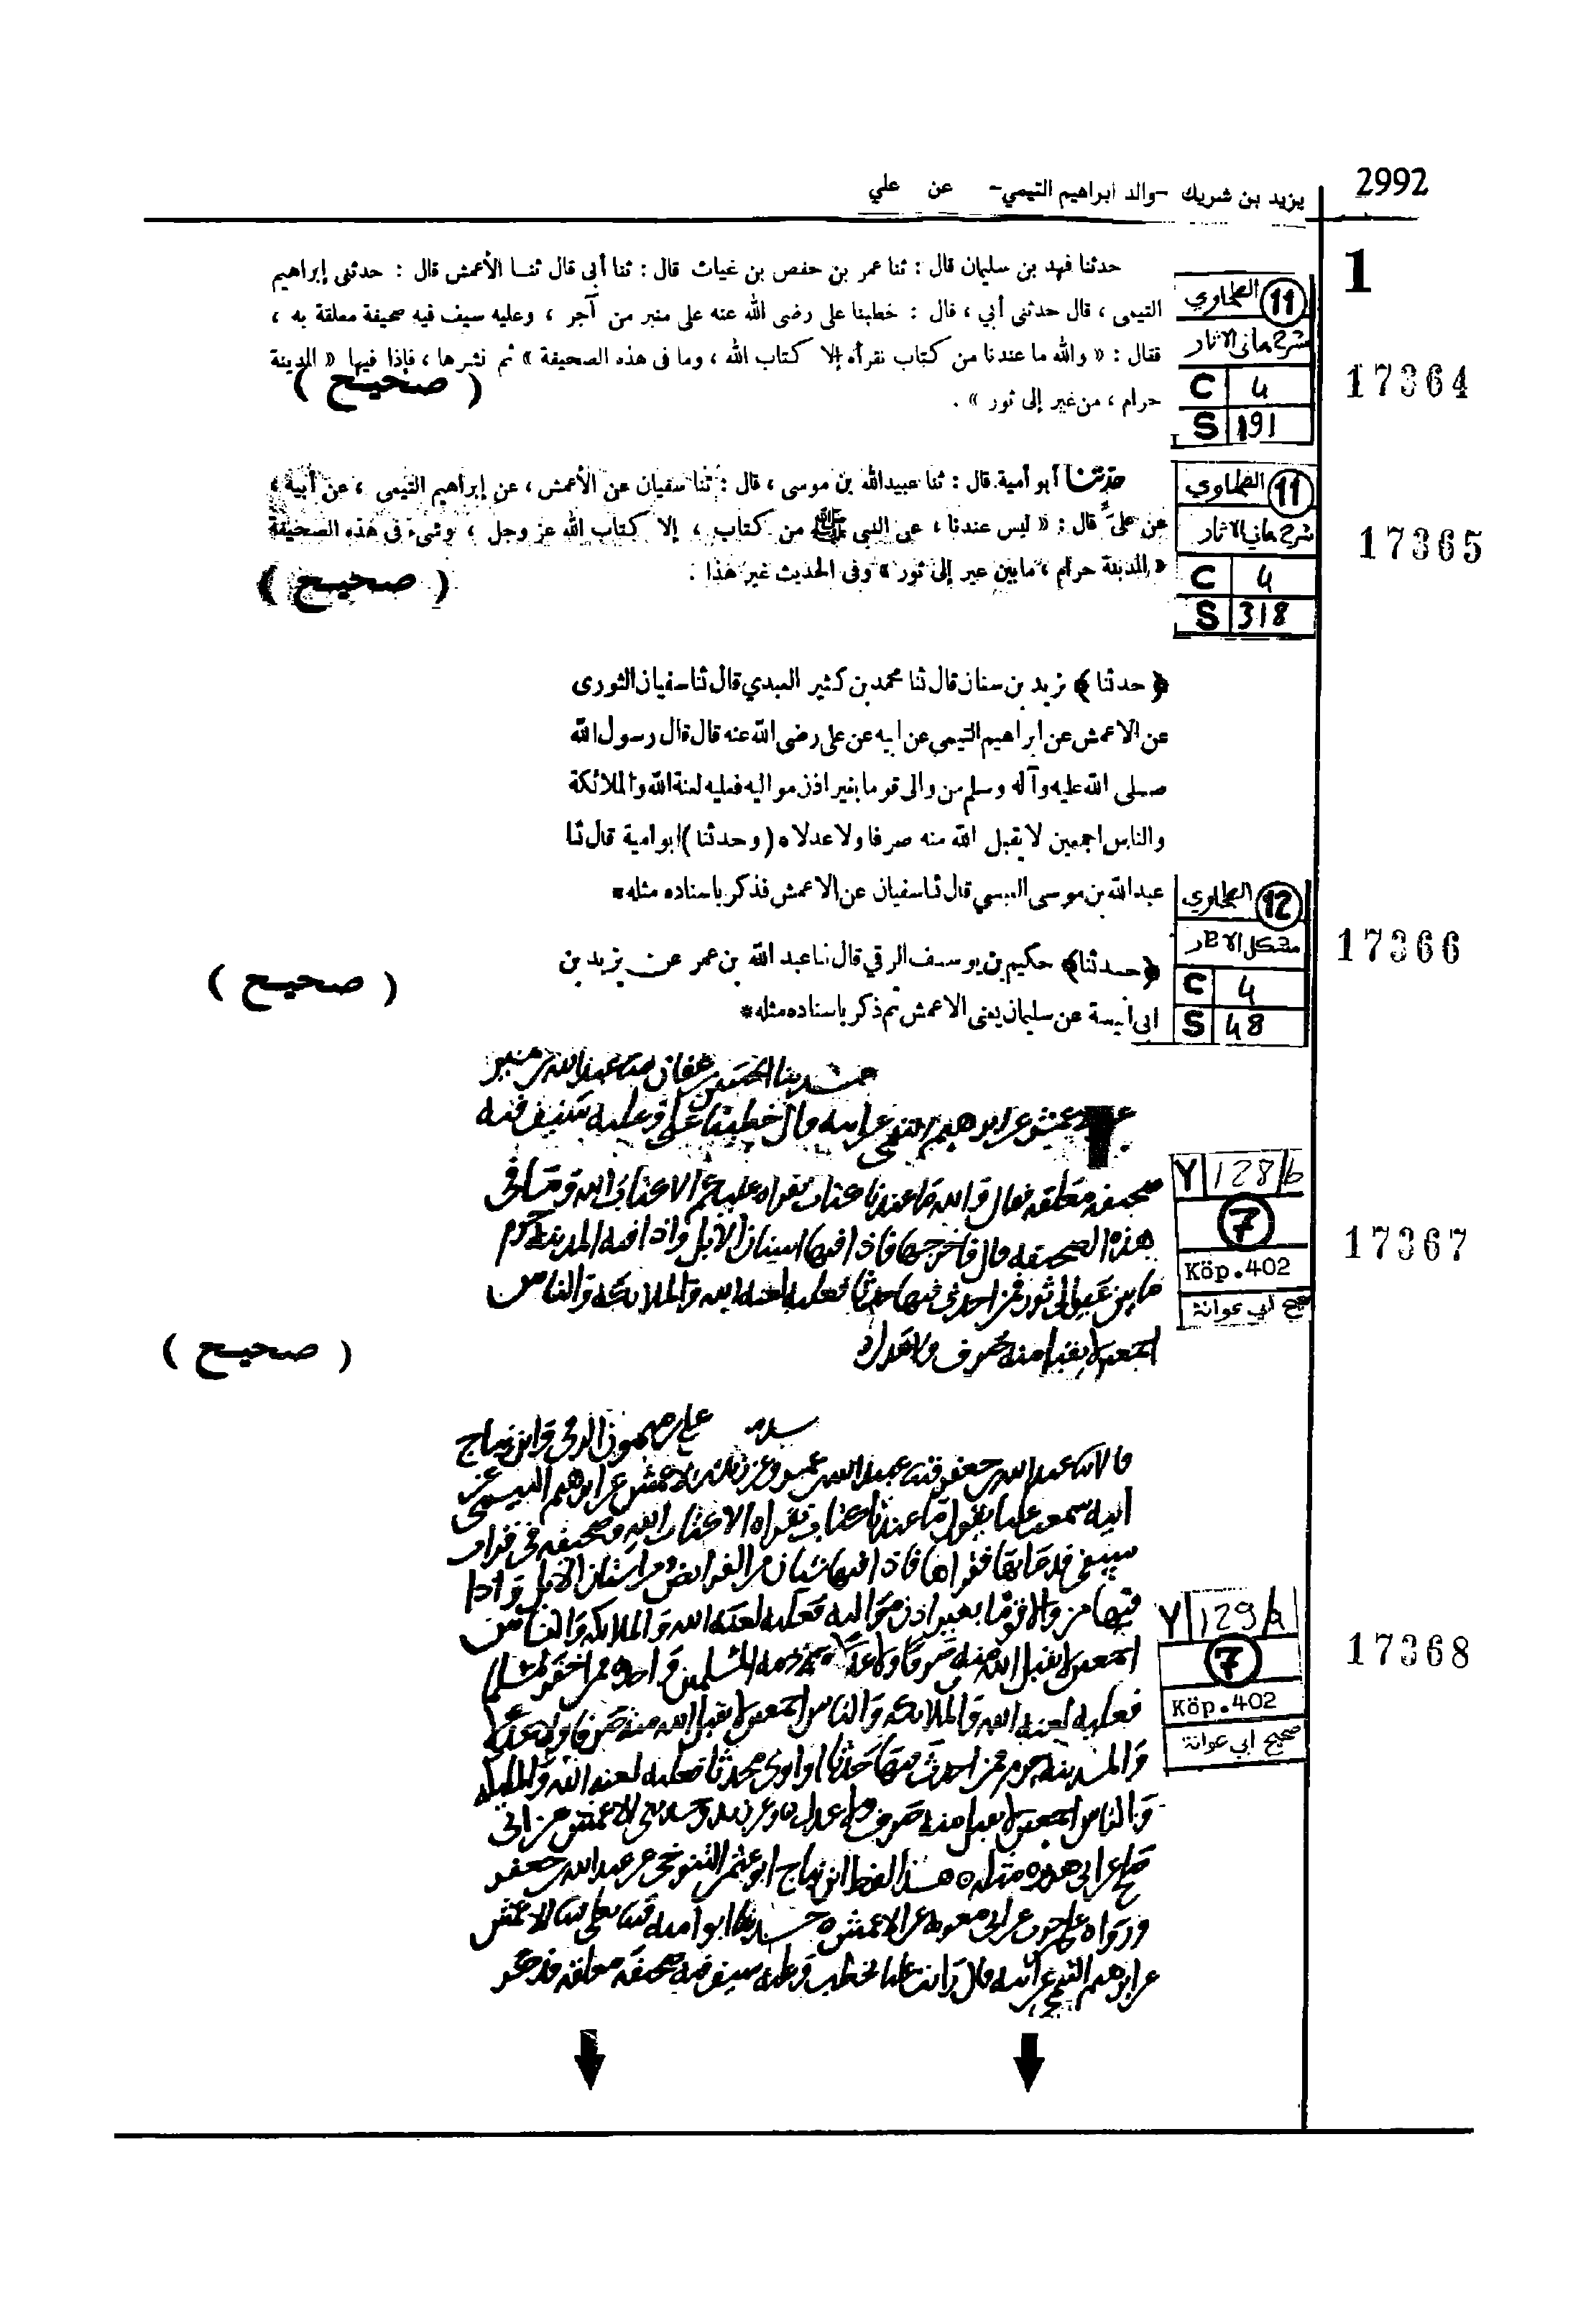 2992
يزيد بن شريك -والد ابراهيم التيمي- عن علي
1
حدثنا فهد بن سليمان قال : ثنا عمر بن حفص بن غياث قال : ثنا أبى قال ثنا الأعمش قال : حدثنى إبراهيم
التيمى ، قال حدثنى أبي ، قال : خطبنا على رضى الله عنه على منبر من آجر ، وعليه سيف فيه صحيفة معلقة به ،
فقال : « والله ما عندنا من كتاب نقرأه إلا كتاب الله ، وما فى هذه الصحيفة » ثم نشرها ، فإذا فيها « المدينة
حرام ، من عير إلى ثور » .
( صحيح )
11 الطحاوي
شرح معاني الاثار
C 4
S 191
17364
حدثنا أبو أمية قال : ثنا عبيدالله بن موسى ، قال : ثنا سفيان عن الأعمش ، عن إبراهيم التيمى ، عن أبيه ،
عن علىّ قال : « ليس عندنا ، عن النبى ﷺ من كتاب ، إلا كتاب الله عز وجل ، وشىء فى هذه الصحيفة
« المدينة حرام ، مابين عير إلى ثور » وفى الحديث غير هذا .
( صحيح )
11 الطحاوي
شرح معاني الاثار
C 4
S 318
17365
﴿ حدثنا ﴾ يزيد بن سنان قال ثنا محمد بن كثير العبدي قال ثنا سفيان الثورى
عن الاعمش عن ابراهيم التيمي عن ابيه عن على رضى الله عنه قال قال رسول الله
صلى الله عليه وآله وسلم من والى قوما بغير اذن مواليه فعليه لعنة الله والملائكة
والناس اجمعين لا يقبل الله منه صرفا ولا عدلا ه ( وحدثنا ) ابو امية قال ثنا
عبد الله بن موسى العبسي قال ثنا سفيان عن الاعمش فذكر باسناده مثله *
﴿ حدثنا ﴾ حكيم بن يوسف الرقي قال ثنا عبد الله بن عمر عن يزيد بن
ابى أنيسة عن سليمان يعنى الاعمش ثم ذكر باسناده مثله *
( صحيح )
12 الطحاوي
مشكل الاثار
C 4
S 48
17366
عبد الله بن
ابرهيم التيمي عن ابيه قال خطبنا علي وعليه سيف فيه
صحيفه معلقه فقال والله ما عندنا كتاب نقراه عليكم الا كتاب الله وما في
هذه الصحيفه قال فاخرجها فاذا فيها اسنان الابل واذا فيه المدينه حرم
ما بين عير الى ثور فمن احدث فيها حدثا فعليه لعنه الله والملائكه والناس
اجمعين لا يقبل منه صرف ولا عدل
( صحيح )
Y 128/b
7
Köp.402
صحيح أبي عوانة
17367
علي بن ميمون الرقي وابن
عبد الله بن جعفر الاعمش عن ابرهيم التيمي عن
ابيه سمعت عليا يقول ما عندنا كتاب نقراه الا كتاب الله وصحيفه في قراب
سيفي فقراها فاذا فيها الفرائض اسنان الابل واذا
فيها من والا قوما بغير اذن مواليه فعليه لعنه الله والملائكه والناس
اجمعين لا يقبل الله منه صرفا ولا عدلا ذمه المسلمين واحده فمن اخفر مسلما
فعليه لعنه الله والملائكه والناس اجمعين لا يقبل الله منه صرفا ولا عدلا
والمدينه حرم فمن احدث فيها حدثا او اوى محدثا فعليه لعنه الله والملائكه
والناس اجمعين لا يقبل منه صرف ولا عدل الاعمش عن ابي
صالح عن ابي هريره مثله هذا لفظ ابن التنوخي عن عبد الله بن جعفر
ورواه عن ابي معويه عن الاعمش ه حدثنا ابو اميه الاعمش
عن ابرهيم التيمي عن ابيه قال رايت عليا يخطب وعليه سيف فيه صحيفه معلقه فذكر
Y 129/a
7
Köp.402
صحيح أبي عوانة
17368